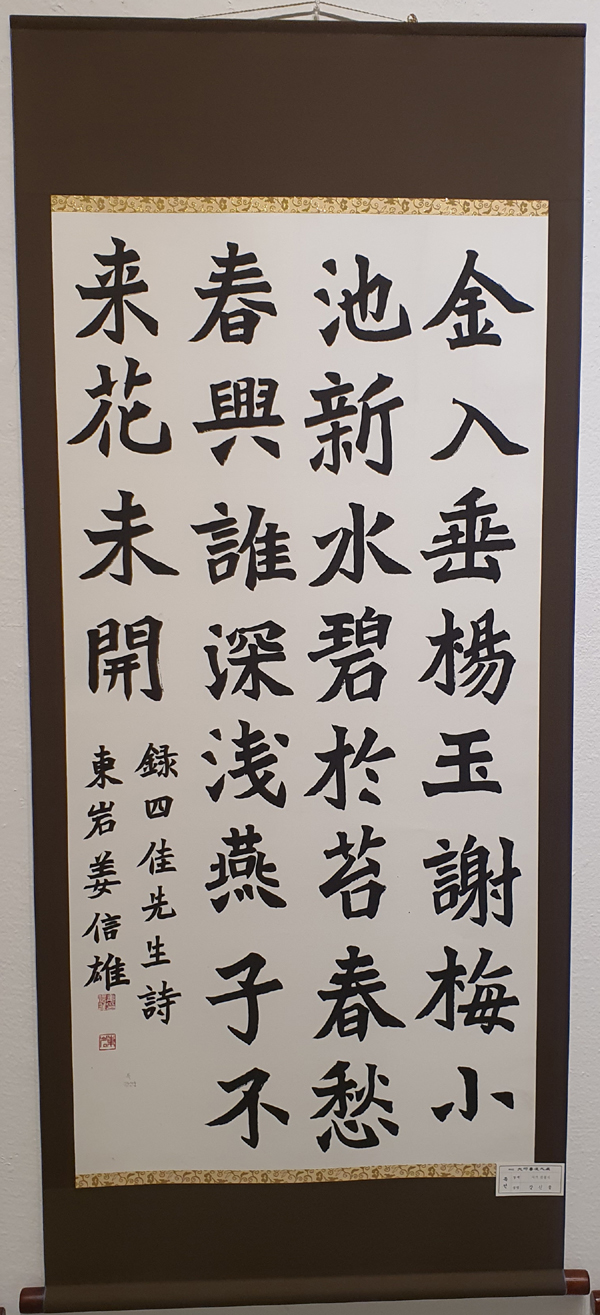 金入垂楊玉謝梅小
池新水碧於苔春愁
春興誰深浅燕子不
来花未開
録四佳先生詩
東岩姜信雄